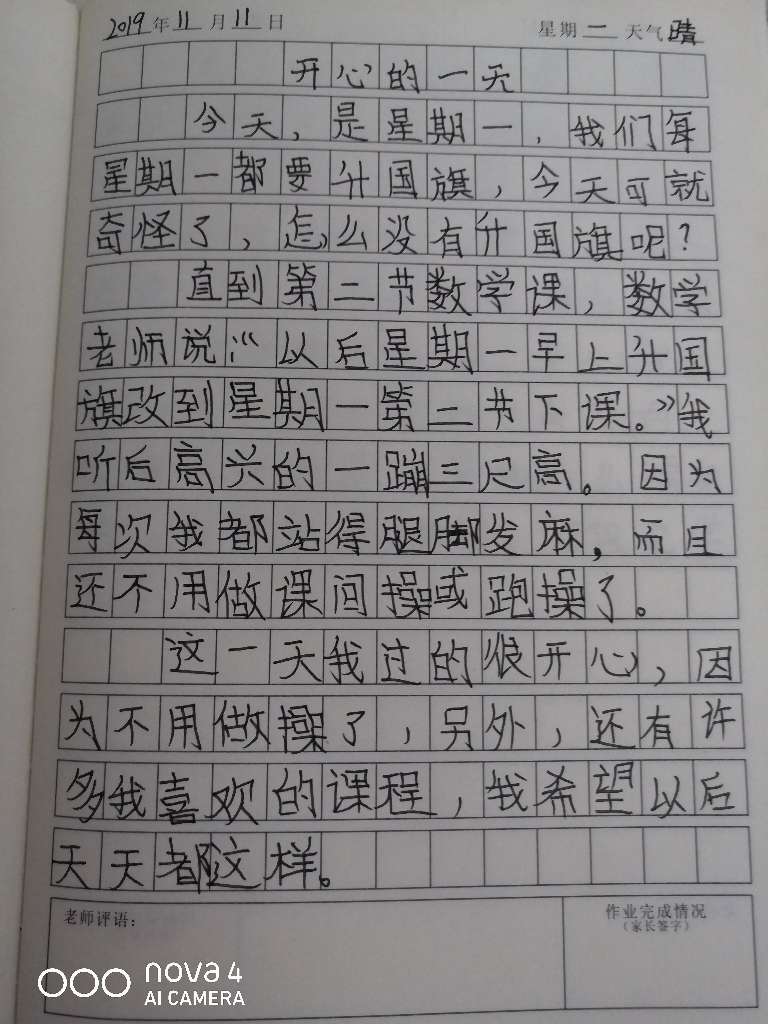 2019年11月11日 星期一天气晴
开心的一天
今天，是星期一，我们每
星期一都要升国旗，今天可就
奇怪了，怎么没有升国旗呢？
直到第二节数学课，数学
老师说：“以后星期一早上升国
旗改到星期一第二节下课。”我
听后高兴的一蹦三尺高。因为
每次我都站得腿脚发麻，而且
还不用做课间操或跑操了。
这一天我过的很开心，因
为不用做操了，另外，还有许
多我喜欢的课程，我希望以后
天天都这样。
老师评语： 作业完成情况
（家长签字）
nova 4
AI CAMERA